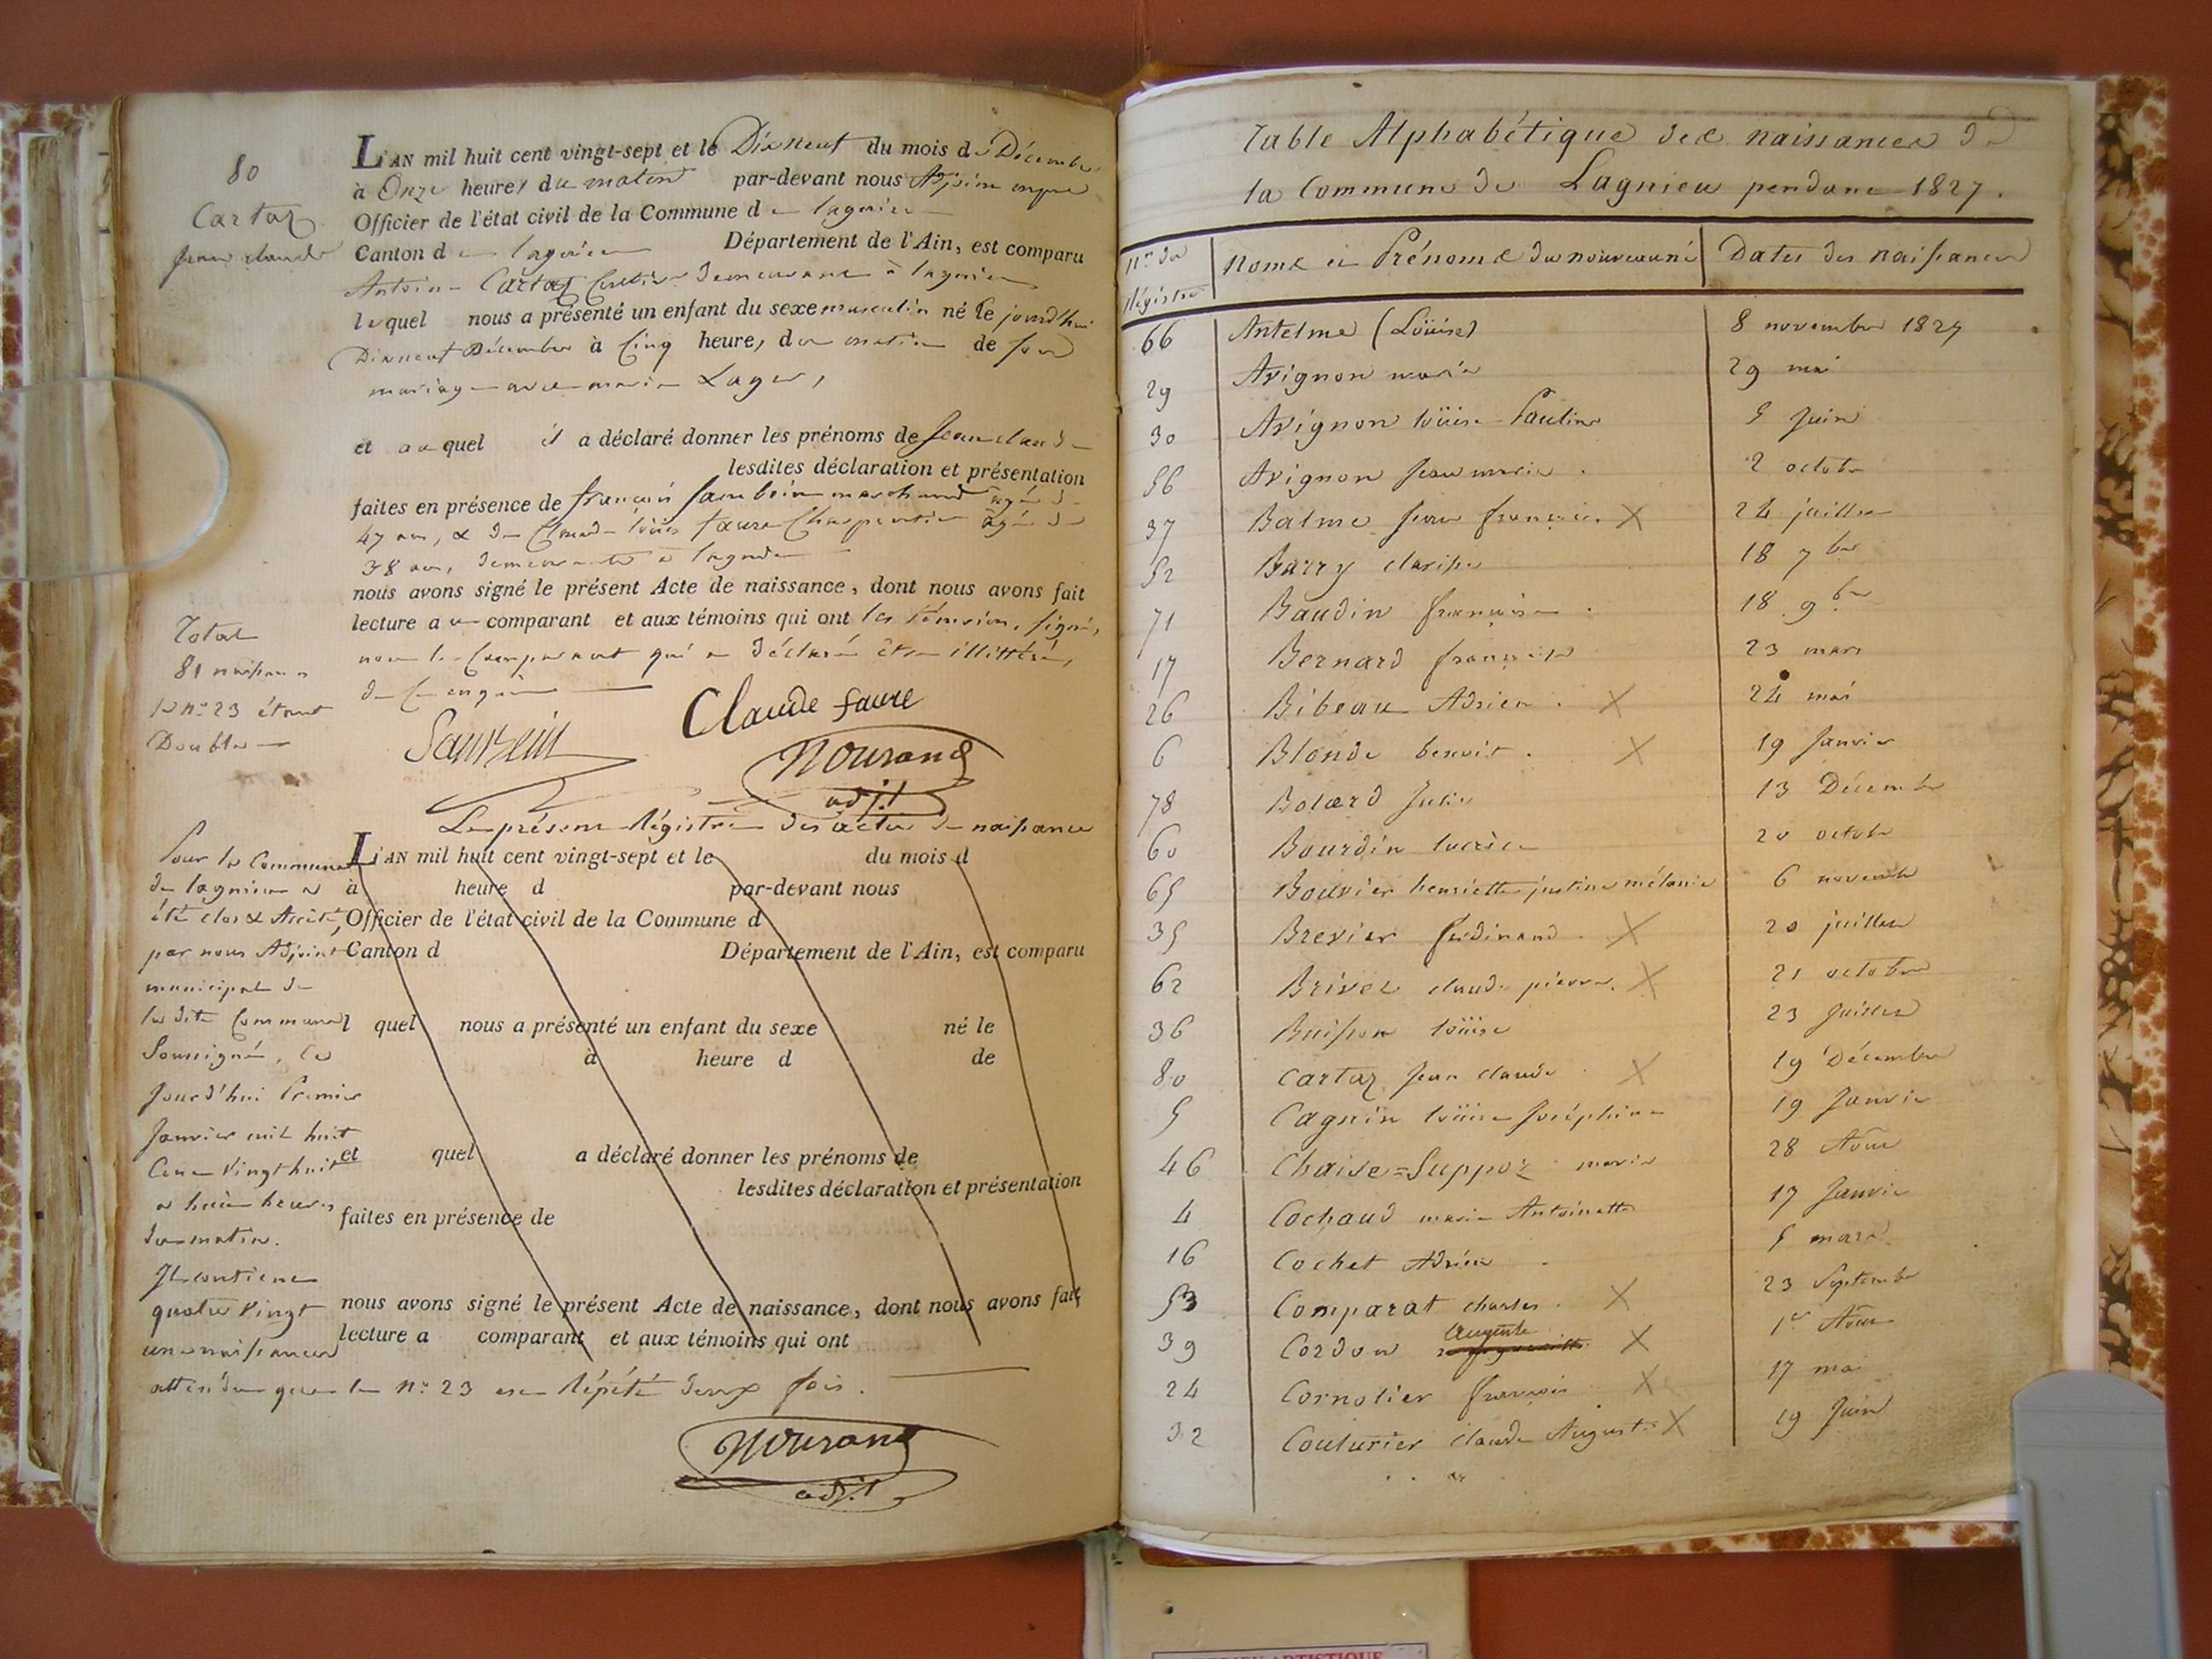 80
Cartaz
Jean claude
L'AN mil huit cent vingt-sept et le Dix neuf du mois de Décembre
à Onze heures du matin par-devant nous Adjoint
Officier de l'état civil de la Commune de lagnieu
Canton de lagnieu Département de l'Ain, est comparu
Antoine Cartaz demeurant à lagnieu
lequel nous a présenté un enfant du sexe masculin né le jourd'hui
Dixneuf Décembre à Cinq heures du matin de son
mariage avec marie Lager,
et auquel il a déclaré donner les prénoms de Jean claude
lesdites déclaration et présentation
faites en présence de françois marchand âgé de
47 ans, & de Claude louis faure Charpentier âgé de
38 ans, demeurants à lagnieu
nous avons signé le présent Acte de naissance, dont nous avons fait
lecture au comparant et aux témoins qui ont les témoins, signé,
non le Comparant qui a déclaré être illittéré,
de ce enquis
Total
81 naissances
le n.o 23 étant
Double
Claude faure
Nourand
adj.t
Le présent Régistre des actes de naissance
Pour la Commune
de lagnieu a
été clos & Arrêté,
par nous Adjoint
municipal de
la dite Commune
Soussigné, le
Jourd'hui Premier
Janvier mil huit
Cent Vingt huit
a huit heures
du matin.
Il contient
quatre Vingt
une naissances
attendu que le n.o 23 est Répété deux fois.
L'AN mil huit cent vingt-sept et le du mois d
à heure d par-devant nous
Officier de l'état civil de la Commune d
Canton d Département de l'Ain, est comparu
l quel nous a présenté un enfant du sexe né le
à heure d de
et quel a déclaré donner les prénoms de
lesdites déclaration et présentation
faites en présence de
nous avons signé le présent Acte de naissance, dont nous avons fait
lecture a comparant et aux témoins qui ont
Nourand
adj.t
Table Alphabétique des naissances de
la Commune de Lagnieu pendant 1827.
N.os du Régistre Noms et Prénoms du nouveau né Dates des naissances
66 Antelme (Loüise) 8 novembre 1827
29 Avignon marie 29 mai
30 Avignon loüise Pauline 5 Juin
56 Avignon Jean marie. 2 octobre
37 Balme Jean françois X 24 juillet
52 Barry clarisse 18 7bre
71 Baudin françoise. 18 9bre
17 Bernard françoise 23 mars
26 Bibeau Adrien. X 24 mai
6 Blonde benoit. X 19 Janvier
78 Bolard Julie 13 Décembre
60 Bourdin lucrèce 20 octobre
65 Bouvier henriette justine mélanie 6 novembre
35 Brevier ferdinand. X 20 juillet
62 Brivet claude pierre. X 21 octobre
36 Buisson loüise 23 Juillet
80 Cartaz Jean claude. X 19 Décembre
5 Cagnin loüise Joséphine 19 Janvier
46 Chaise=Suppoz marie 28 Août
4 Cochaud marie Antoinette 17 Janvier
16 Cochet Adrien. 5 mars
53 Comparat charles. X 23 Septembre
39 Cordon auguste X 1er Août
24 Cornolier françois X 17 mai
32 Couturier claude Auguste X 19 Juin